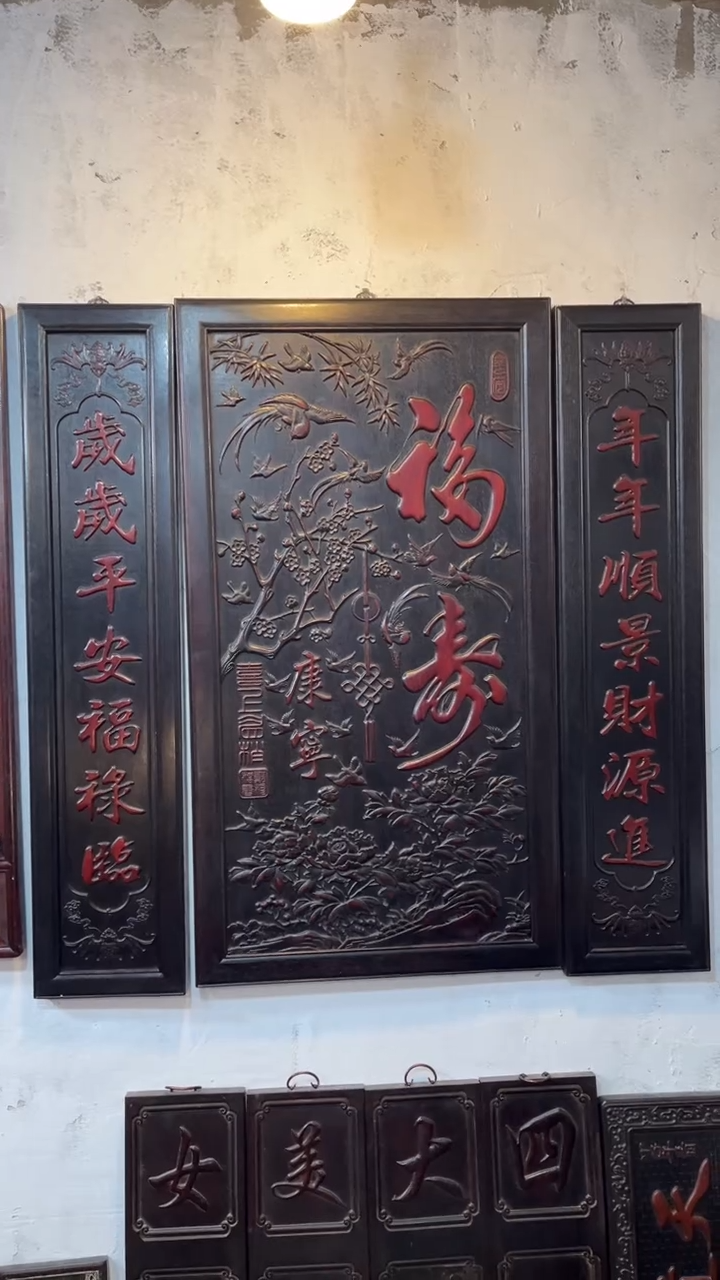 年年順景財源進
福壽
康寧
歲歲平安福祿臨
四大美女